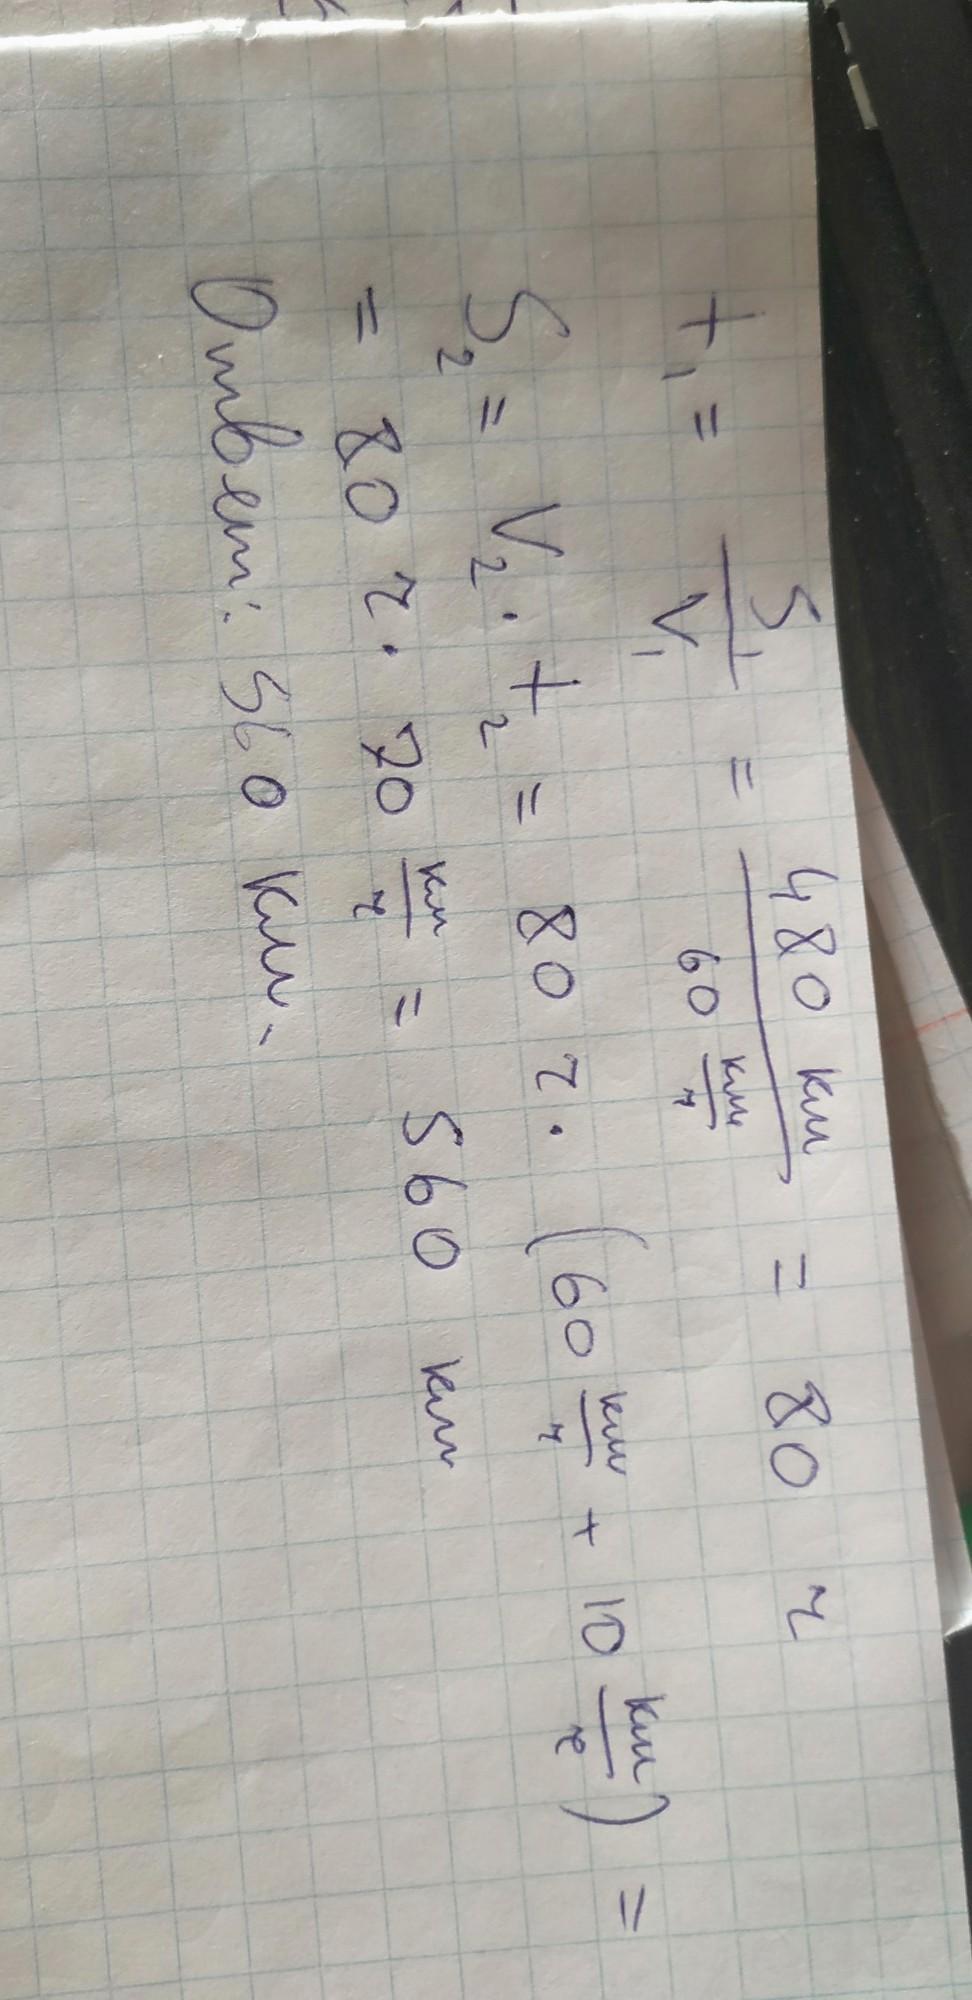 t₁ = S₁/V₁ = 480 км / 60 км/ч = 80 ч
S₂ = V₂ · t₂ = 80 ч · (60 км/ч + 10 км/ч) =
= 80 ч · 70 км/ч = 560 км
Ответ: 560 км.